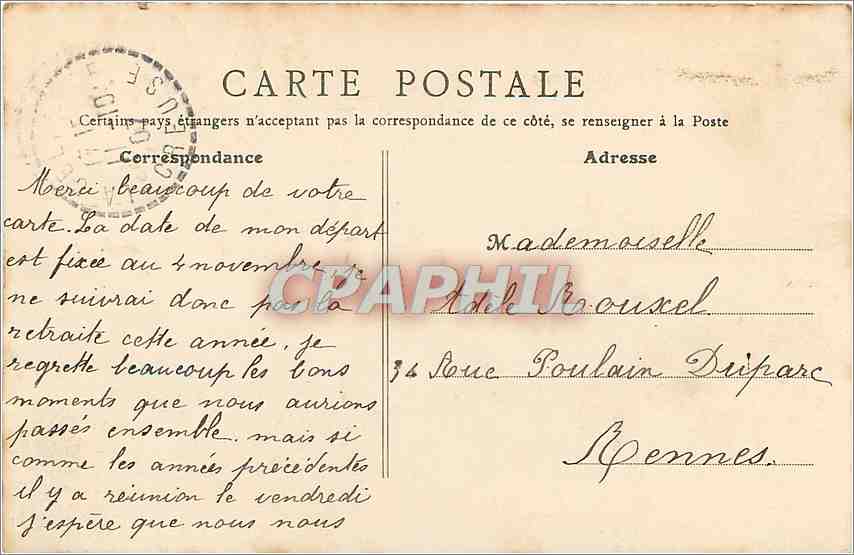 CARTE POSTALE
Certains pays étrangers n'acceptant pas la correspondance de ce côté, se renseigner à la Poste
Correspondance
Merci beaucoup de votre
carte. La date de mon départ
est fixée au 4 novembre, je
ne suivrai donc pas la
retraite cette année, je
regrette beaucoup les bons
moments que nous aurions
passés ensemble. mais si
comme les années précédentes
il y a réunion le vendredi
j'espère que nous nous
Adresse
Mademoiselle
Adèle Rouxel
Rue Poulain Duparc
Rennes.
CPAPHIL
CREUSE